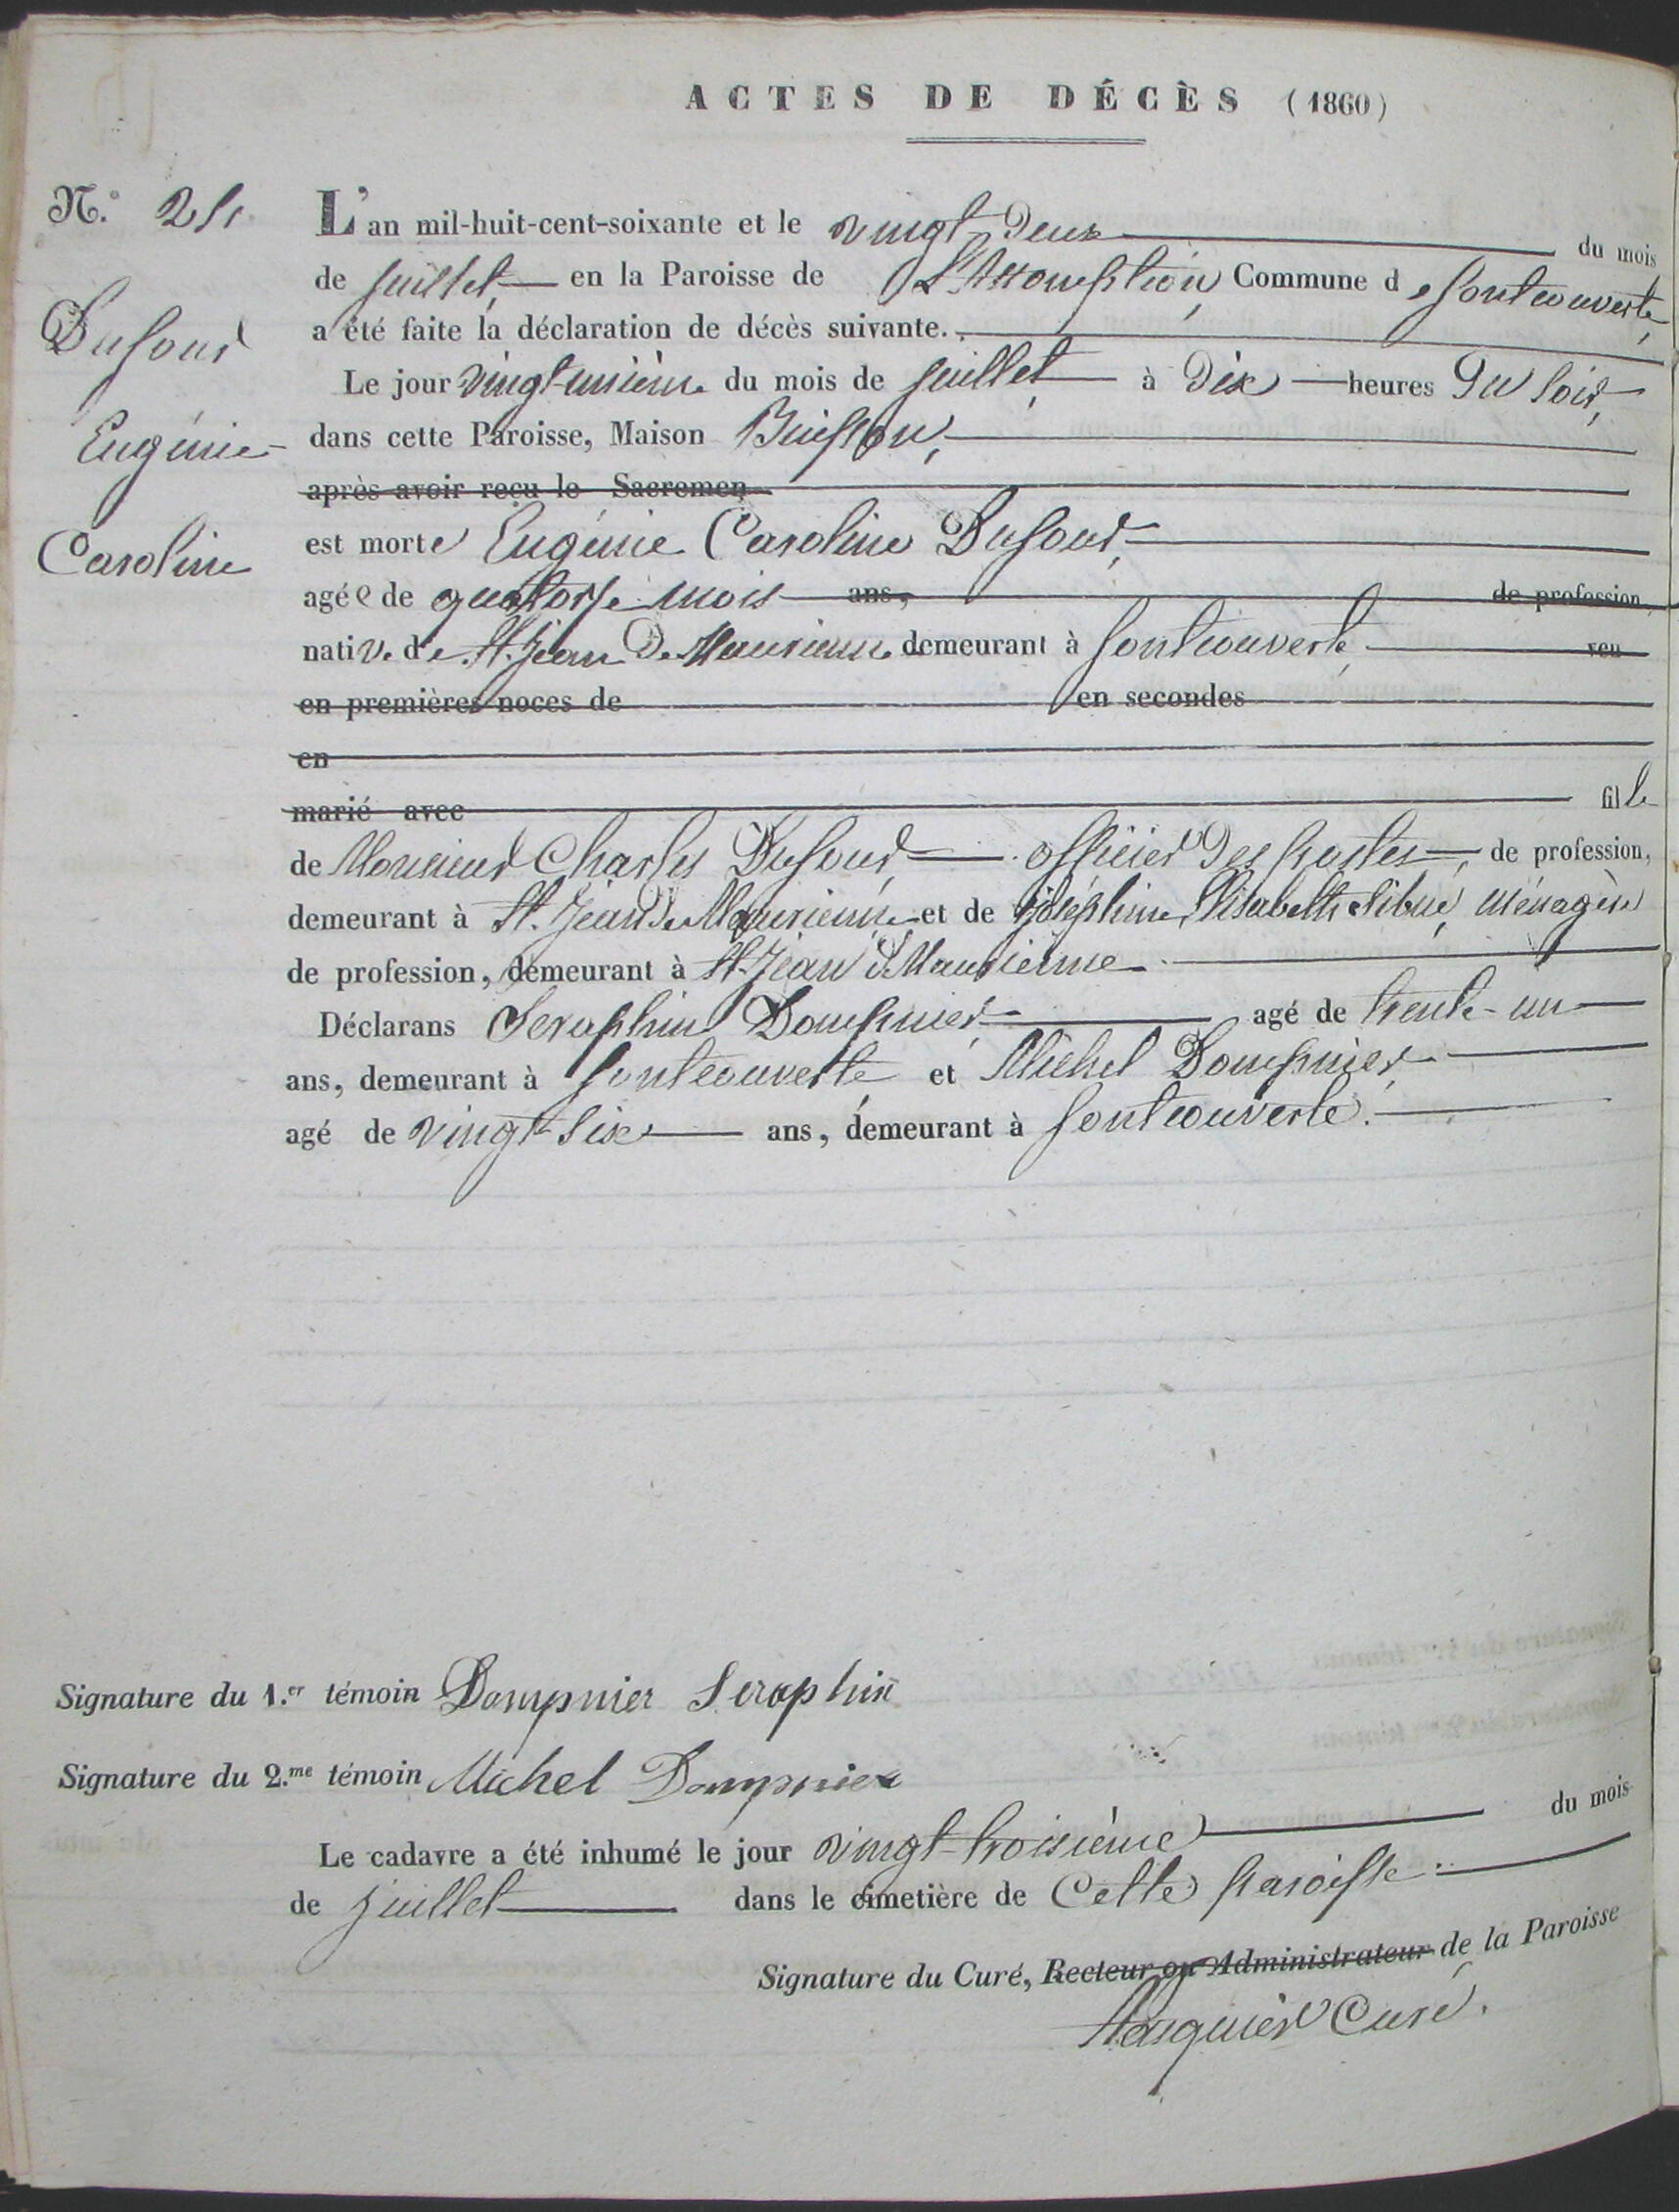 ACTES DE DÉCÈS (1860)
N.°
L'an mil-huit-cent-soixante et le vingt-deux du mois
de juillet, en la Paroisse de L'Assomption, Commune de fontcouverte,
a été faite la déclaration de décès suivante.
Dufour
Le jour vingt-unième du mois de juillet à dix heures du soir,
Eugénie
dans cette Paroisse, Maison Buisson,
après avoir reçu le Sacremen
Caroline
est morte Eugénie Caroline Dufour,
agée de quatorze mois ans, de profession
native de St. Jean de Maurienne demeurant à fontcouverte, veu
en premières noces de en secondes
en
marié avec fille
de Monsieur Charles Dufour officier des postes, de profession,
demeurant à St. Jean de Maurienne et de joséphine Elisabeth ménagère
de profession, demeurant à St. Jean d Maurienne
Déclarans Seraphin Dompnier agé de trente-un
ans, demeurant à fontcouverte et Michel Dompnier
agé de vingt-six ans, demeurant à fontcouverte.
Signature du 1.er témoin Dompnier Seraphin
Signature du 2.me témoin Michel Dompnier
Le cadavre a été inhumé le jour vingt-troisième du mois
de juillet dans le cimetière de cette paroisse
Signature du Curé, Recteur ou Administrateur de la Paroisse
Curé.